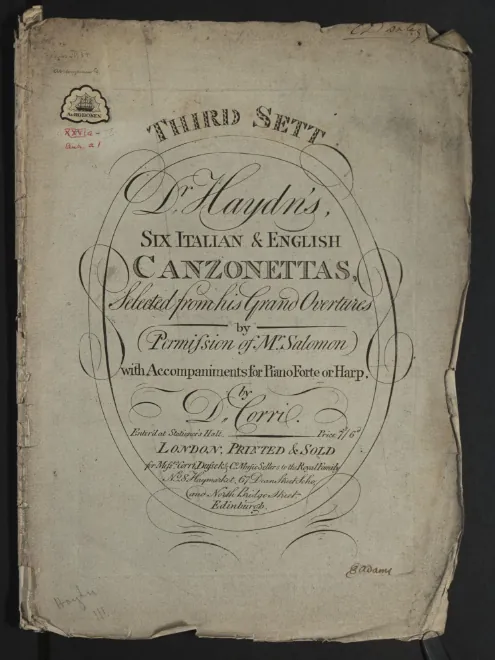 THIRD SETT
Dr. Haydn's,
SIX ITALIAN & ENGLISH
CANZONETTAS,
Selected from his Grand Overtures
by
(Permiſsion of Mr. Salomon)
with Accompaniments for Piano Forte or Harp.
by
D. Corri.
Enter'd at Stationer's Hall. Price 7/6
LONDON, PRINTED & SOLD
for Meſsrs. Corri, Duſsek & Co. Muſic Sellers to the Royal Family
No. 8, Haymarket, 67 Dean Street Soho,
(and North Bridge Street
Edinburgh.
Adams
Haydn
III